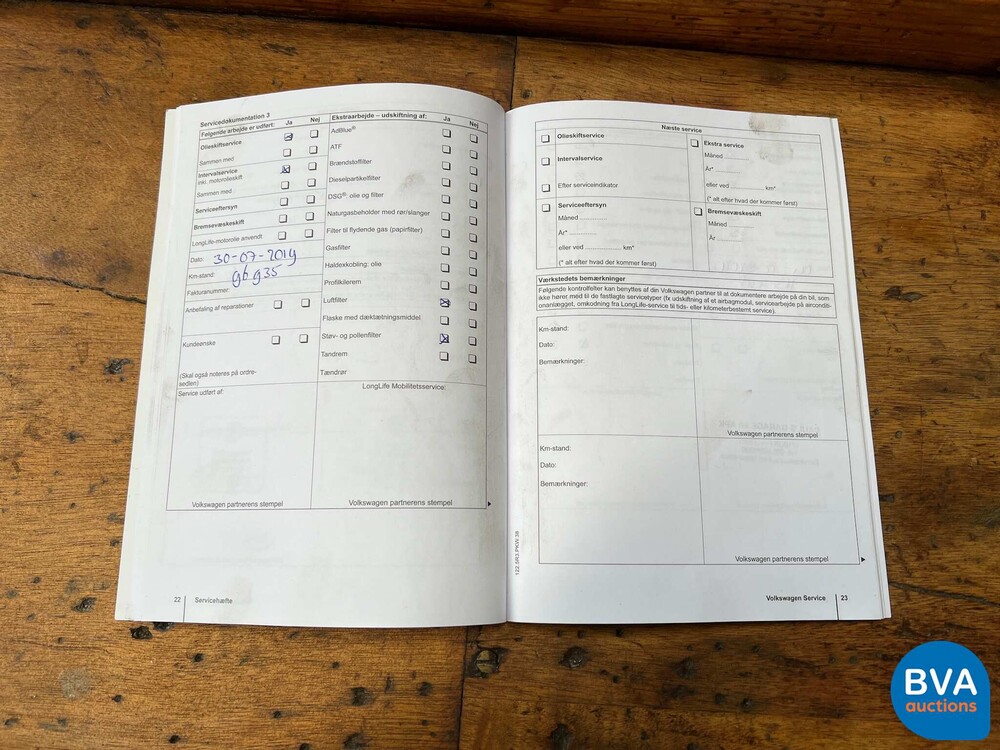 Servicedokumentation 3
Følgende arbejde er udført: Ja Nej
Olieskiftservice
Sammen med
Intervalservice
Inkl. motorolieskift
Sammen med
Serviceeftersyn
Bremsevæskeskift
LongLife-motorolie anvendt
Dato: 30-07-2019
Km-stand: 96935
Fakturanummer:
Anbefaling af reparationer
Kundeønske
(Skal også noteres på ordre-
sedlen)
Service udført af:
Volkswagen partnerens stempel
Ekstraarbejde – udskiftning af: Ja Nej
AdBlue®
ATF
Brændstoffilter
Dieselpartikelfilter
DSG®: olie og filter
Naturgasbeholder med rør/slanger
Filter til flydende gas (papirfilter)
Gasfilter
Haldexkobling: olie
Profilkilerem
Luftfilter
Flaske med dæktætningsmiddel
Støv- og pollenfilter
Tandrem
Tændrør
LongLife Mobilitetsservice:
Volkswagen partnerens stempel
22 Servicehæfte
Næste service
Olieskiftservice
Intervalservice
Efter serviceindikator
Serviceeftersyn
Måned
År*
eller ved km*
(* alt efter hvad der kommer først)
Ekstra service
Måned
År*
eller ved km*
(* alt efter hvad der kommer først)
Bremsevæskeskift
Måned
År
Værkstedets bemærkninger
Følgende kontrolfelter kan benyttes af din Volkswagen partner til at dokumentere arbejde på din bil, som
ikke hører med til de fastlagte servicetyper (fx udskiftning af et airbagmodul, servicearbejde på airconditi-
onanlægget, omkodning fra LongLife-service til tids- eller kilometerbestemt service).
Km-stand:
Dato:
Bemærkninger:
Volkswagen partnerens stempel
Km-stand:
Dato:
Bemærkninger:
Volkswagen partnerens stempel
122.5R3.PKW.38
Volkswagen Service 23
BVA
auctions